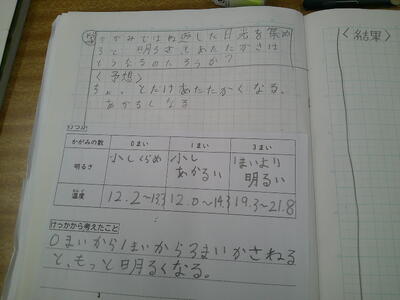 かがみではね返した日光を集め
ると、明るさとあたたかさは
どうなるのだろうか?
<予想>
ちょっとだけあたたかくなる。
あかるくなる
かがみの数 0まい 1まい 3まい
明るさ 小しくらめ 小しあかるい 1まいより明るい
温度 12.2~13.3 12.0~14.3 19.3~21.8
けっかから考えたこと
0まいから1まいから3まいかさねる
と、もっと明るくなる。
<結果>